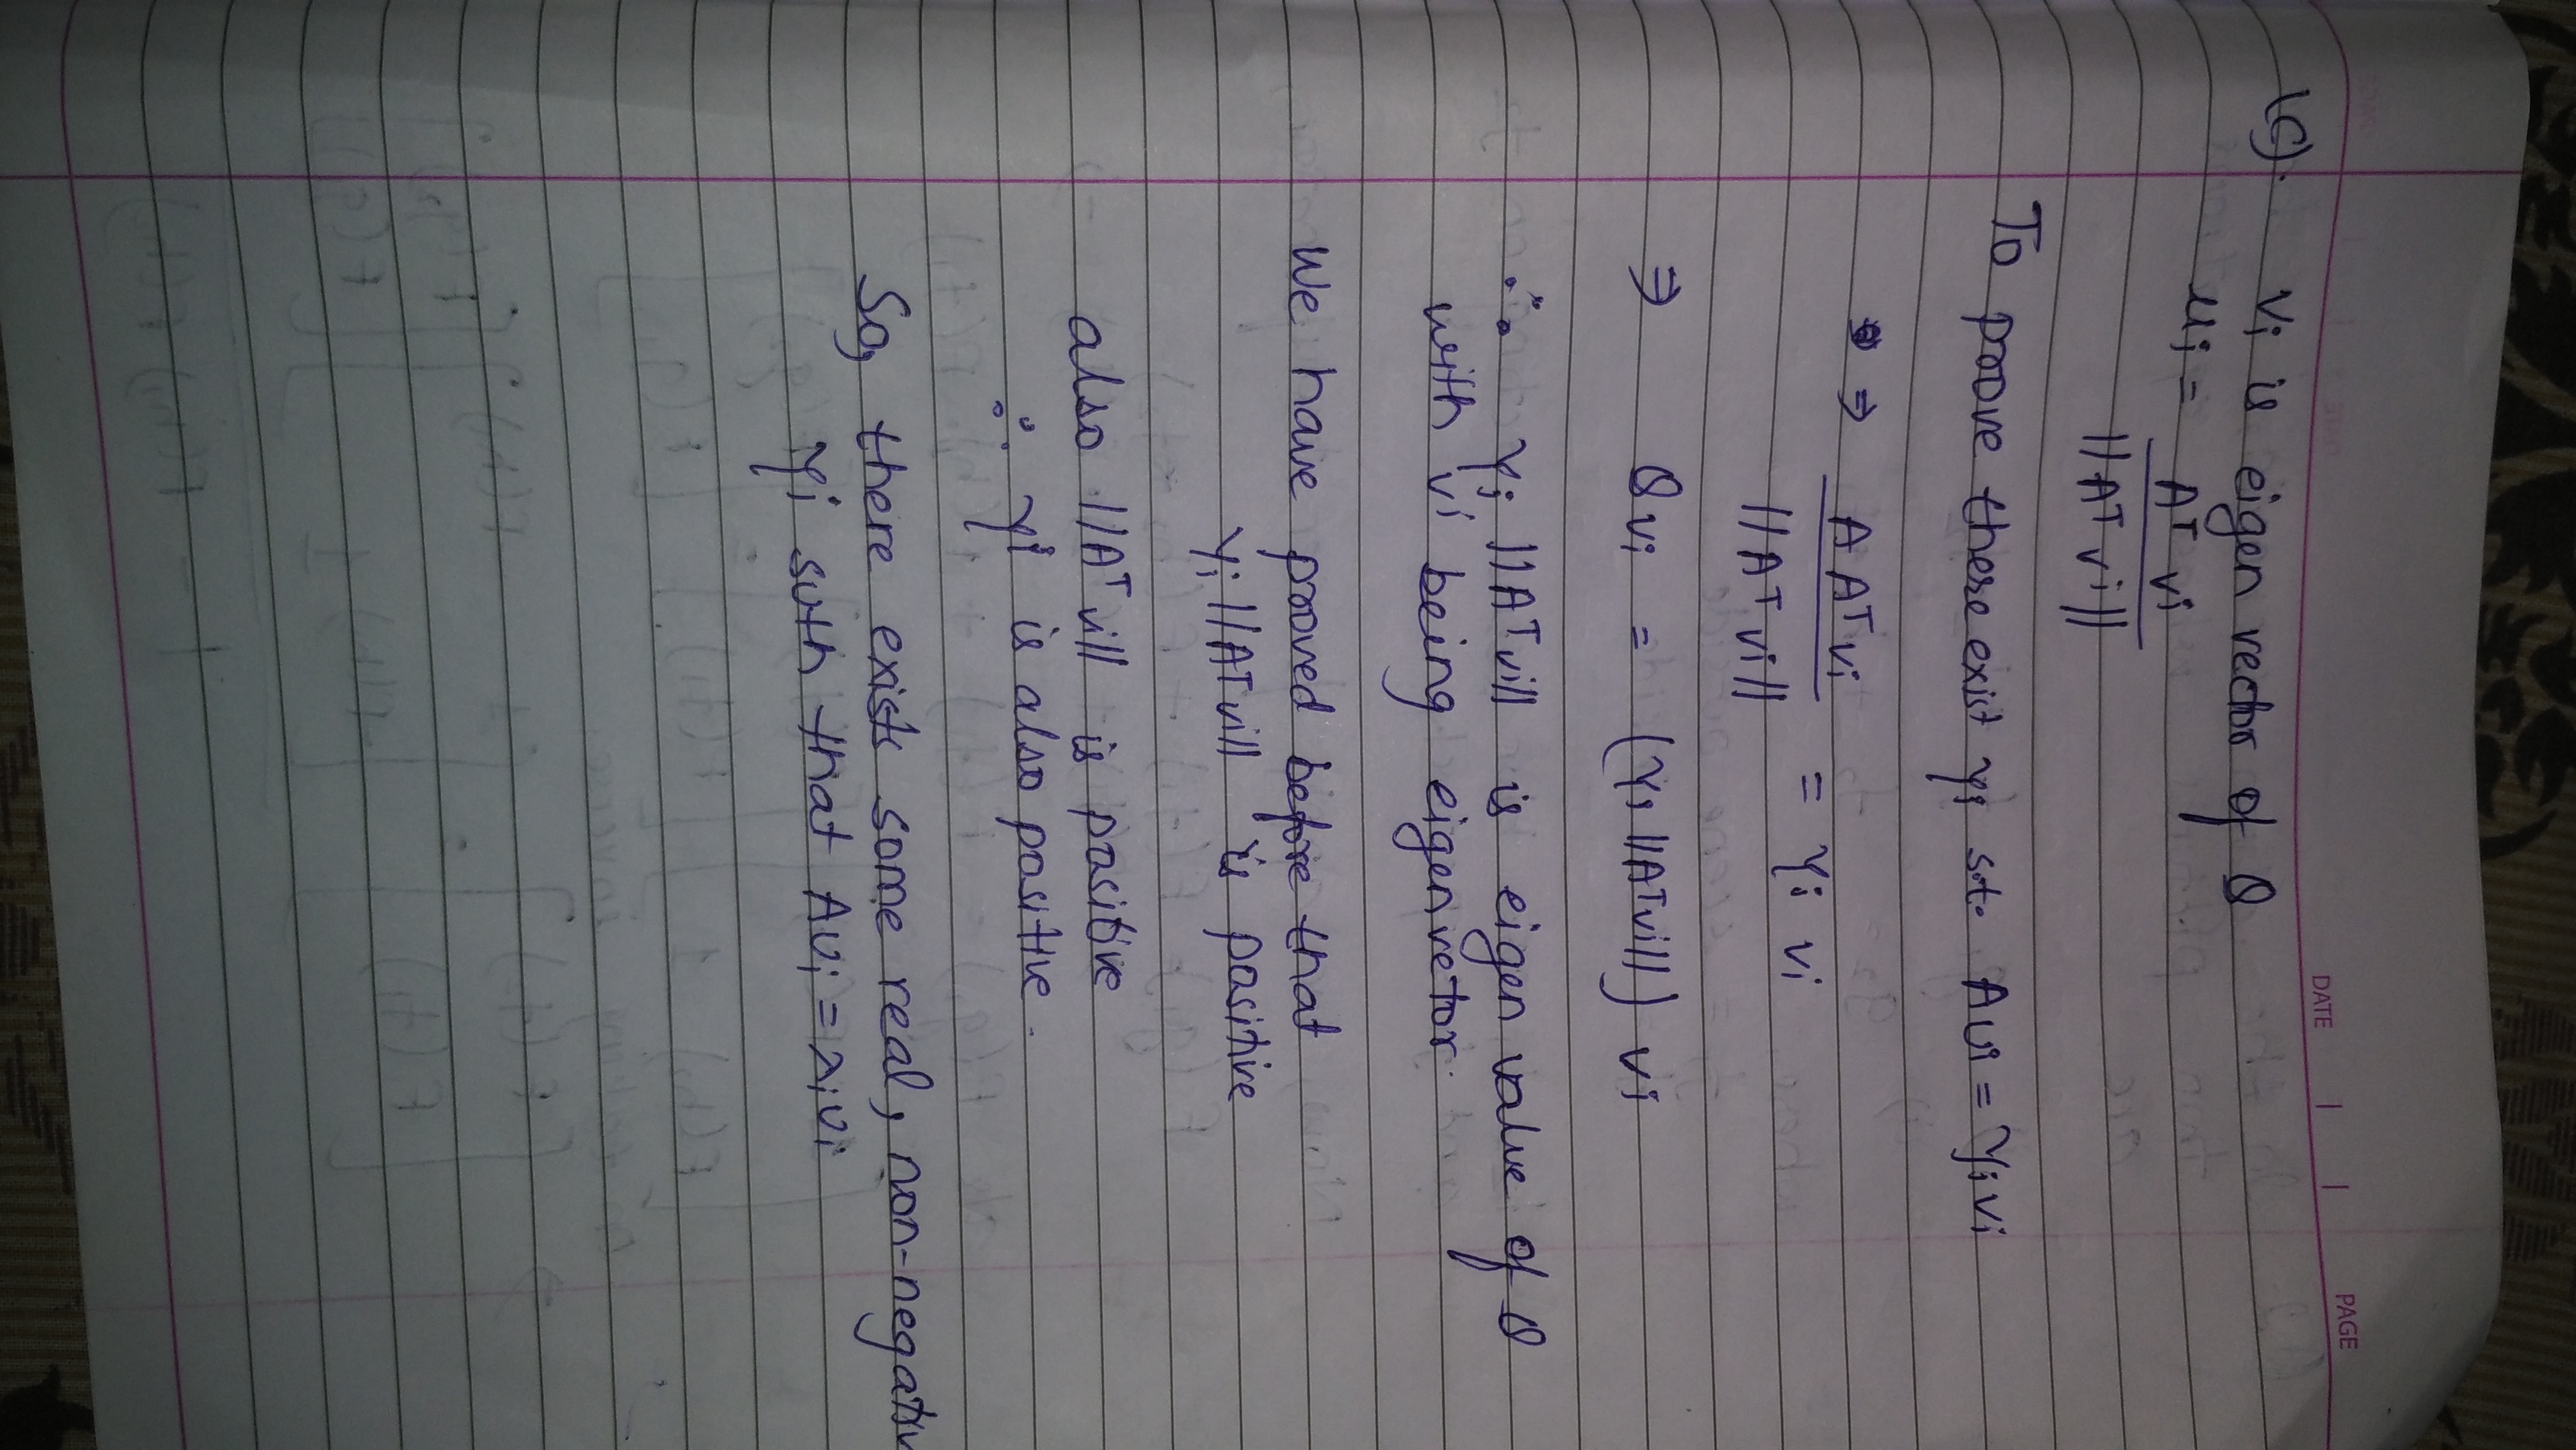 DATE
PAGE
(C). vi is eigen vector of Q
ui = Aᵀ vi / ||Aᵀ vi||
To proove there exist γi s.t. Aui = γi vi
⇒ A Aᵀ vi / ||Aᵀ vi|| = γi vi
⇒ Q vi = (γi ||Aᵀ vi||) vi
∴ γi ||Aᵀ vi|| is eigen value of Q
with vi being eigen vector.
We have prooved before that
γi ||Aᵀ vi|| is positive
also ||Aᵀ vi|| is positive
∴ γi is also positive.
So, there exists some real, non-negativ
γi such that Aui = λi vi